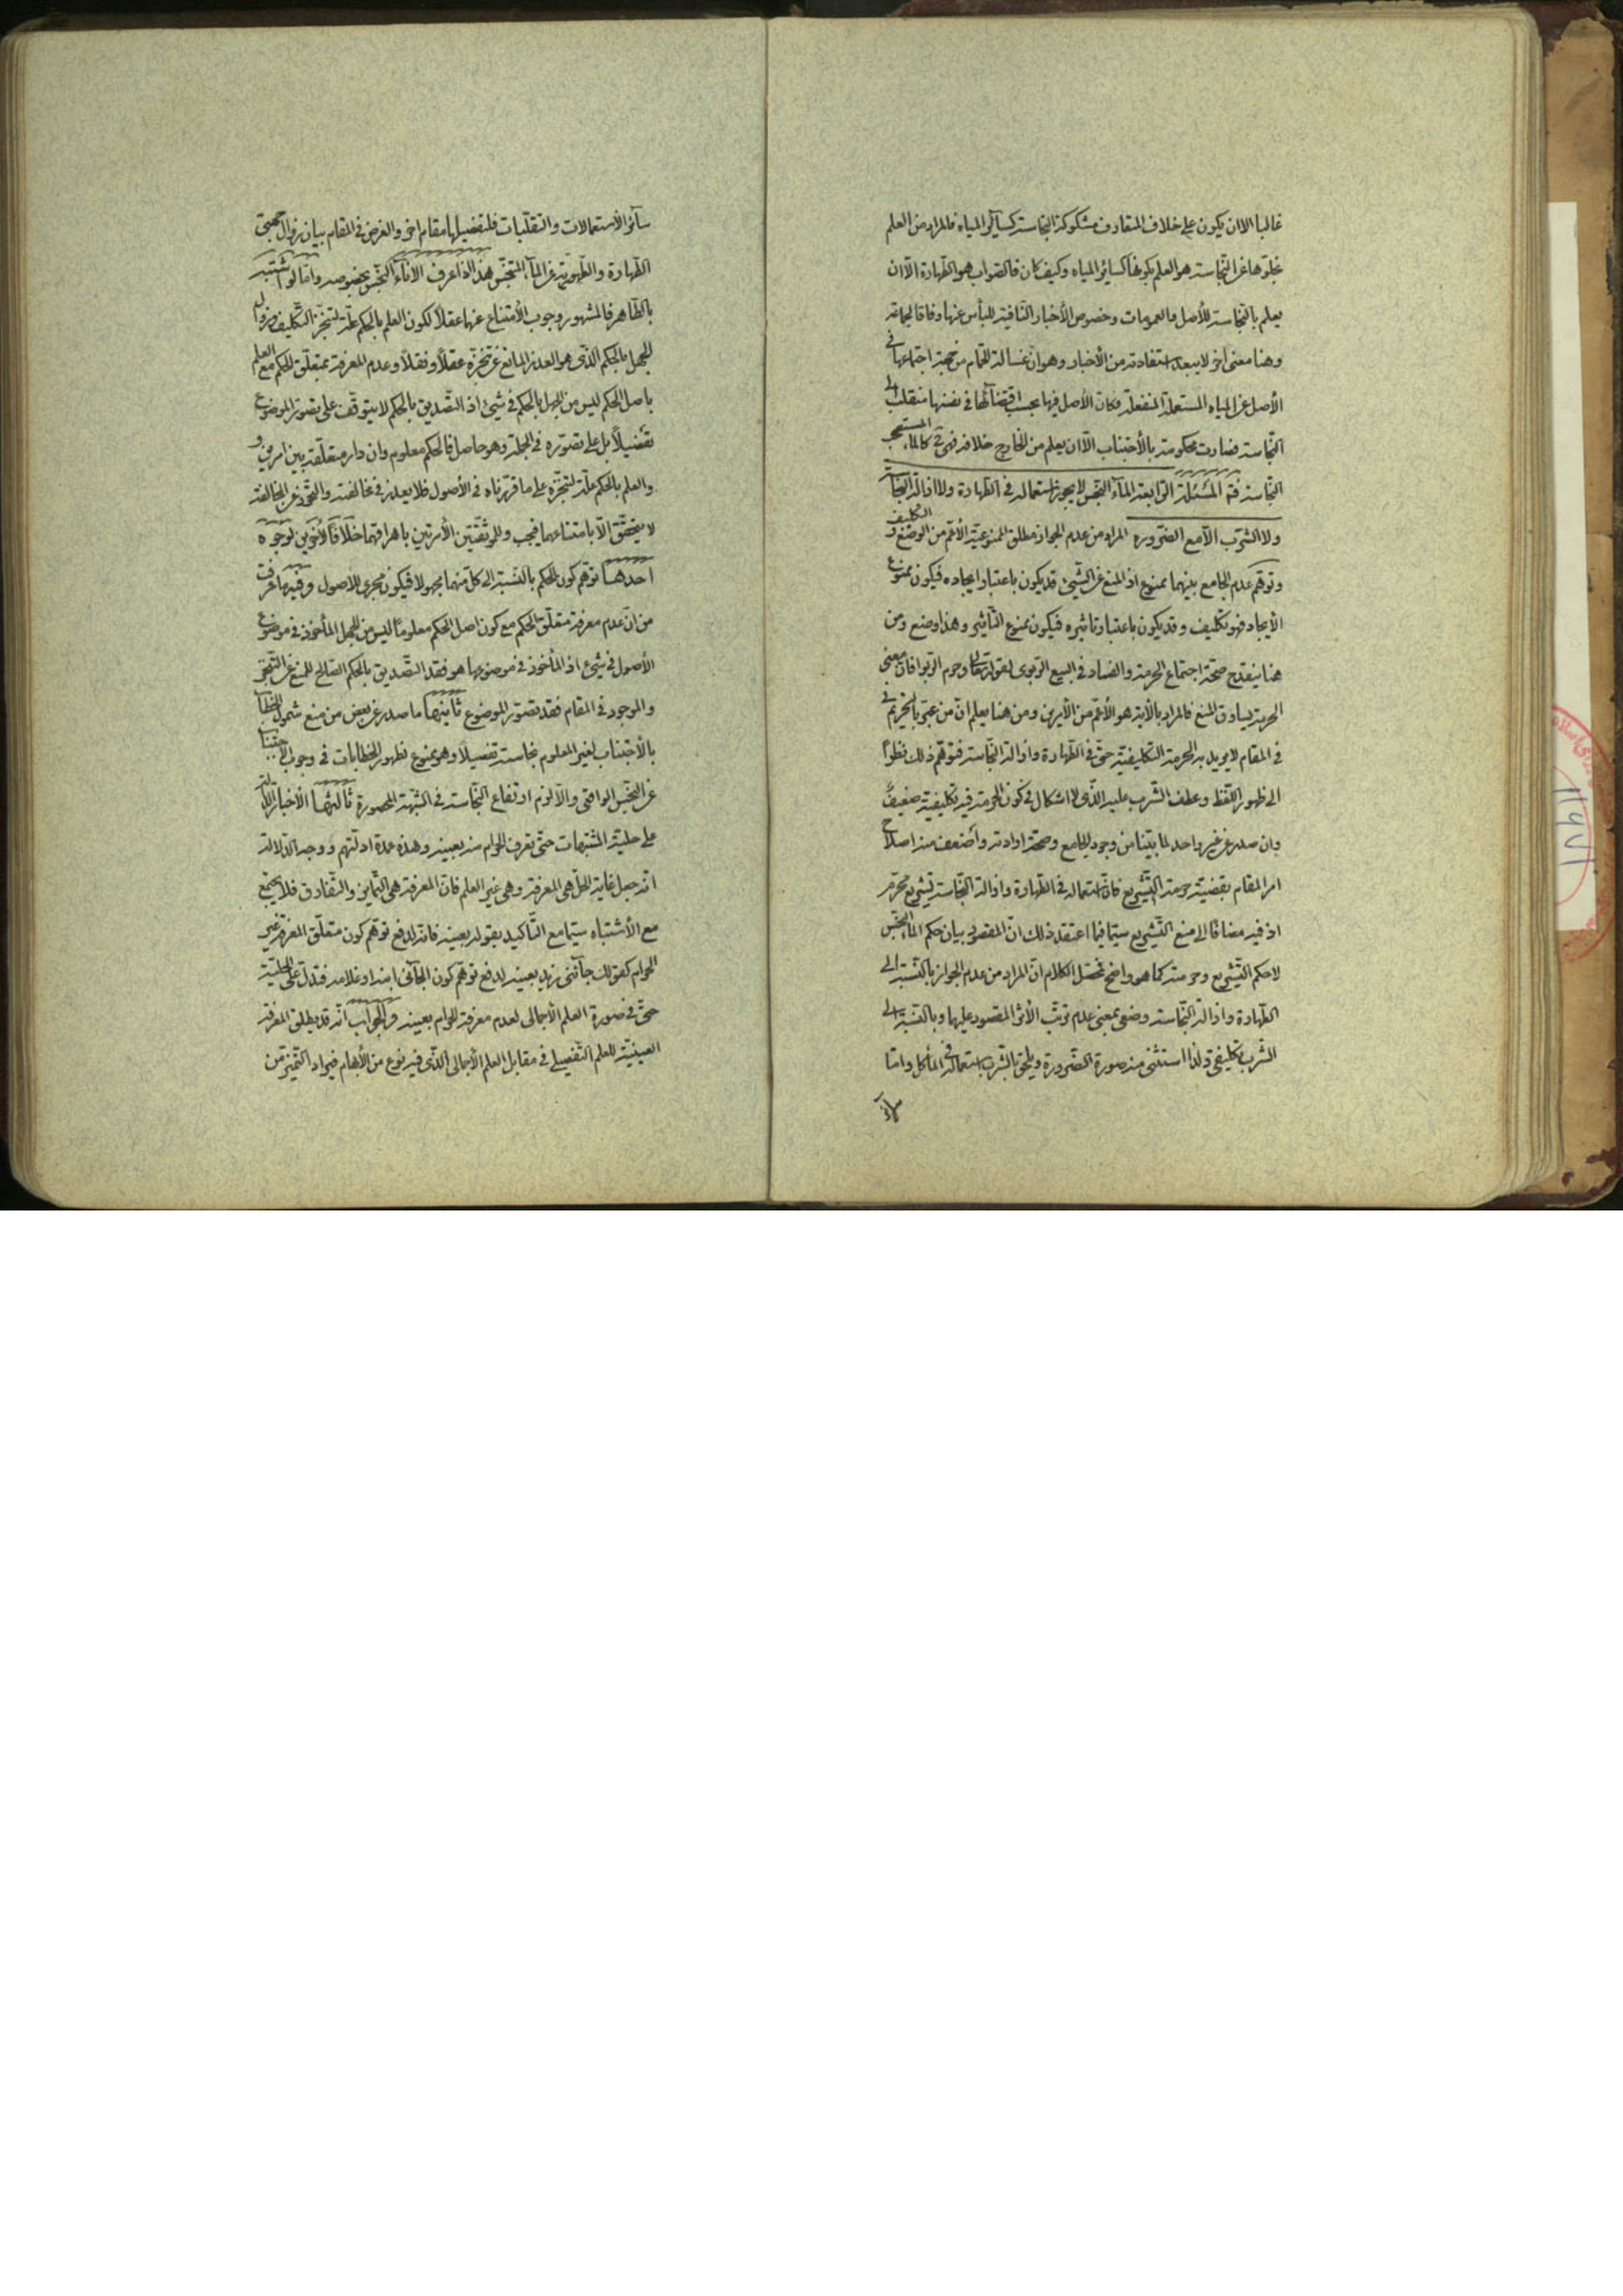 غالبا الا ان يكون على خلاف المتعارف مشكوكة النجاسة كسائر المياه فالمراد من العلم
بخلوّها عن النّجاسة هو العلم بكونها كسائر المياه وكيف كان فالصّواب هو الطّهارة الّا ان
يعلم بالنّجاسة للأصل والعمومات وخصوص الأخبار النّافية للبأس عنها وفاقا لجماعة
وهنا معنى اخر لا يبعد استفادته من الأخبار وهو انّ غسالة الحمّام من جهة اجتماعها فى
الأصل عن المياه المستعملة المنفعلة فكان الأصل فيها بحسب اقتضائها فى نفسها منقلب الى
النّجاسة فصارت محكومة بالأجتناب الّا ان يعلم من الخارج خلافه فهى ح كالماء المستصحب
النّجاسة فتمّ المسئلة الرّابعة الماء النّجس لا يجوز استعماله فى الطّهارة ولا ازالة النّجاسة
ولا الشّرب الّا مع الضّرورة المراد من عدم الجواز مطلق الممنوعيّة الأعمّ من الوضع و التكليف
وتوهّم عدم الجامع بينهما ممنوع اذ المنع عن الشّيئ قد يكون باعتبار ايجاده فيكون ممنوع
الأيجاد فهو تكليف وقد يكون باعتبار تاثيره فيكون ممنوع التّأثير وهذا وضع ومن
هنا ينقدح صحّة اجتماع الحرمة والفساد فى البيع الرّبوى لقوله تعالى وحرم الرّبوا فانّ معنى
الحرمة يساوق المنع فالمراد بالآية هو الأعمّ من الأمرين ومن هنا يعلم انّ من عبّر بالتّحريم فى
فى المقام لا يريد به الحرمة التكليفيّة حتّى فى الطّهارة وازالة النّجاسة فتوهّم ذلك نظرًا
الى ظهور اللّفظ وعطف الشّرب عليه الّذى لا اشكال فى كون الحرمة فيه تكليفيّة ضعيفٌ
وان صدر عن غير واحد لما بيّنا من وجود الجامع وصحّة ارادته واضعف منه اصلاح
امر المقام بقضيّة حرمة التّشريع فانّ استعماله فى الطّهارة وازالة النّجاسة تشريع محرّم
اذ فيه مضافًا الى منع التّشريع سيّما فيما اعتقد ذلك انّ المقصود بيان حكم الماء النّجس
لا حكم التّشريع وحرمته كما هو واضح فمحصّل الكلام انّ المراد من عدم الجواز بالنّسبة الى
الطّهارة وازالة النّجاسة وضعى بمعنى عدم ترتّب الأثر المقصود عليها وبالنّسبة الى
الشّرب تكليفىّ ولذا استثنى منه صورة الضّرورة ويلحق بالشّرب استعماله فى المأكل وامّا
سائر
سائر الأستعمالات والتقلّبات فلتفضيلها مقام اخر والغرض فى المقام بيان زوال جهتى
الطّهارة والطّهوريّة عن الماء المتنجّس هذا اذا عرف الاناء النّجس بخصوصه وامّا لو اشتبه
بالطّاهر فالمشهور وجوب الأمتناع عنهما عقلًا لكون العلم بالحكم علّة لتنجّز التّكليف وزوال
الجهل بالحكم الّذى هو العذر المانع عن تنجّزه عقلًا ونقلًا وعدم المعرفة بمتعلّق الحكم مع العلم
باصل الحكم ليس من الجهل بالحكم فى شيئ اذ التّصديق بالحكم لا يتوقّف على تصوّر الموضوع
تفضيلًا بل على تصوّره فى الجملة وهو حاصل فالحكم معلوم وان دار متعلّقه بين امرين و
والعلم بالحكم علّة لتنجّزه على ما قرّرناه فى الأصول فلا يعذر فى مخالفته والتحرّز عن المخالفة
لا يتحقّق الّا بامتناعهما فيجب وللموثّقتين الأمرتين باهراقهما خلافًا لأخرين لوجوه
احدها توهّم كون الحكم بالنّسبة الى كلّ منهما مجهولا فيكون مجرى للاصول وفيه ما عرفت
من انّ عدم معرفة متعلّق الحكم مع كون اصل الحكم معلومًا ليس من الجهل المأخوذ فى موضوع
الأصول فى شيئ اذ المأخوذ فى موضوعها هو فقد التّصديق بالحكم الصّالح للمنع عن التّنجّز
والموجود فى المقام فقد تصوّر الموضوع ثانيها ما صدر عن بعض من منع شمول الخطاب
بالأجتناب لغير المعلوم نجاسته تفصيلًا وهو ممنوع لظهور الخطابات فى وجوب الأجتناب
عن النّجس الواقعى والّا لزم ارتفاع النّجاسة فى الشّبهة المحصورة ثالثها الأخبار الدالّة
على حليّة المشتبهات حتّى تعرف الحرام منه بعينه وهذه عمدة ادلّتهم ووجه الدّلالة
انّه جعل غاية الحلّ هى المعرفة وهى غير العلم فانّ المعرفة هى التّمايز والتّفارق فلا يجتمع
مع الأشتباه سيّما مع التّأكيد بقوله بعينه فانّه لدفع توهّم كون متعلّق المعرفة غير
الحرام كقولك جائنى زيد بعينه لدفع توهّم كون الجائى ابنه او غلامه فتدلّ على الحليّة
حتّى فى صورة العلم الأجمالى لعدم معرفة الحرام بعينه والجواب انّه قد يطلق المعرفة
العينيّة للعلم التّفصيلى فى مقابل العلم الأجمالى الّذى فيه نوع من الأبهام فيراد التّميّز من